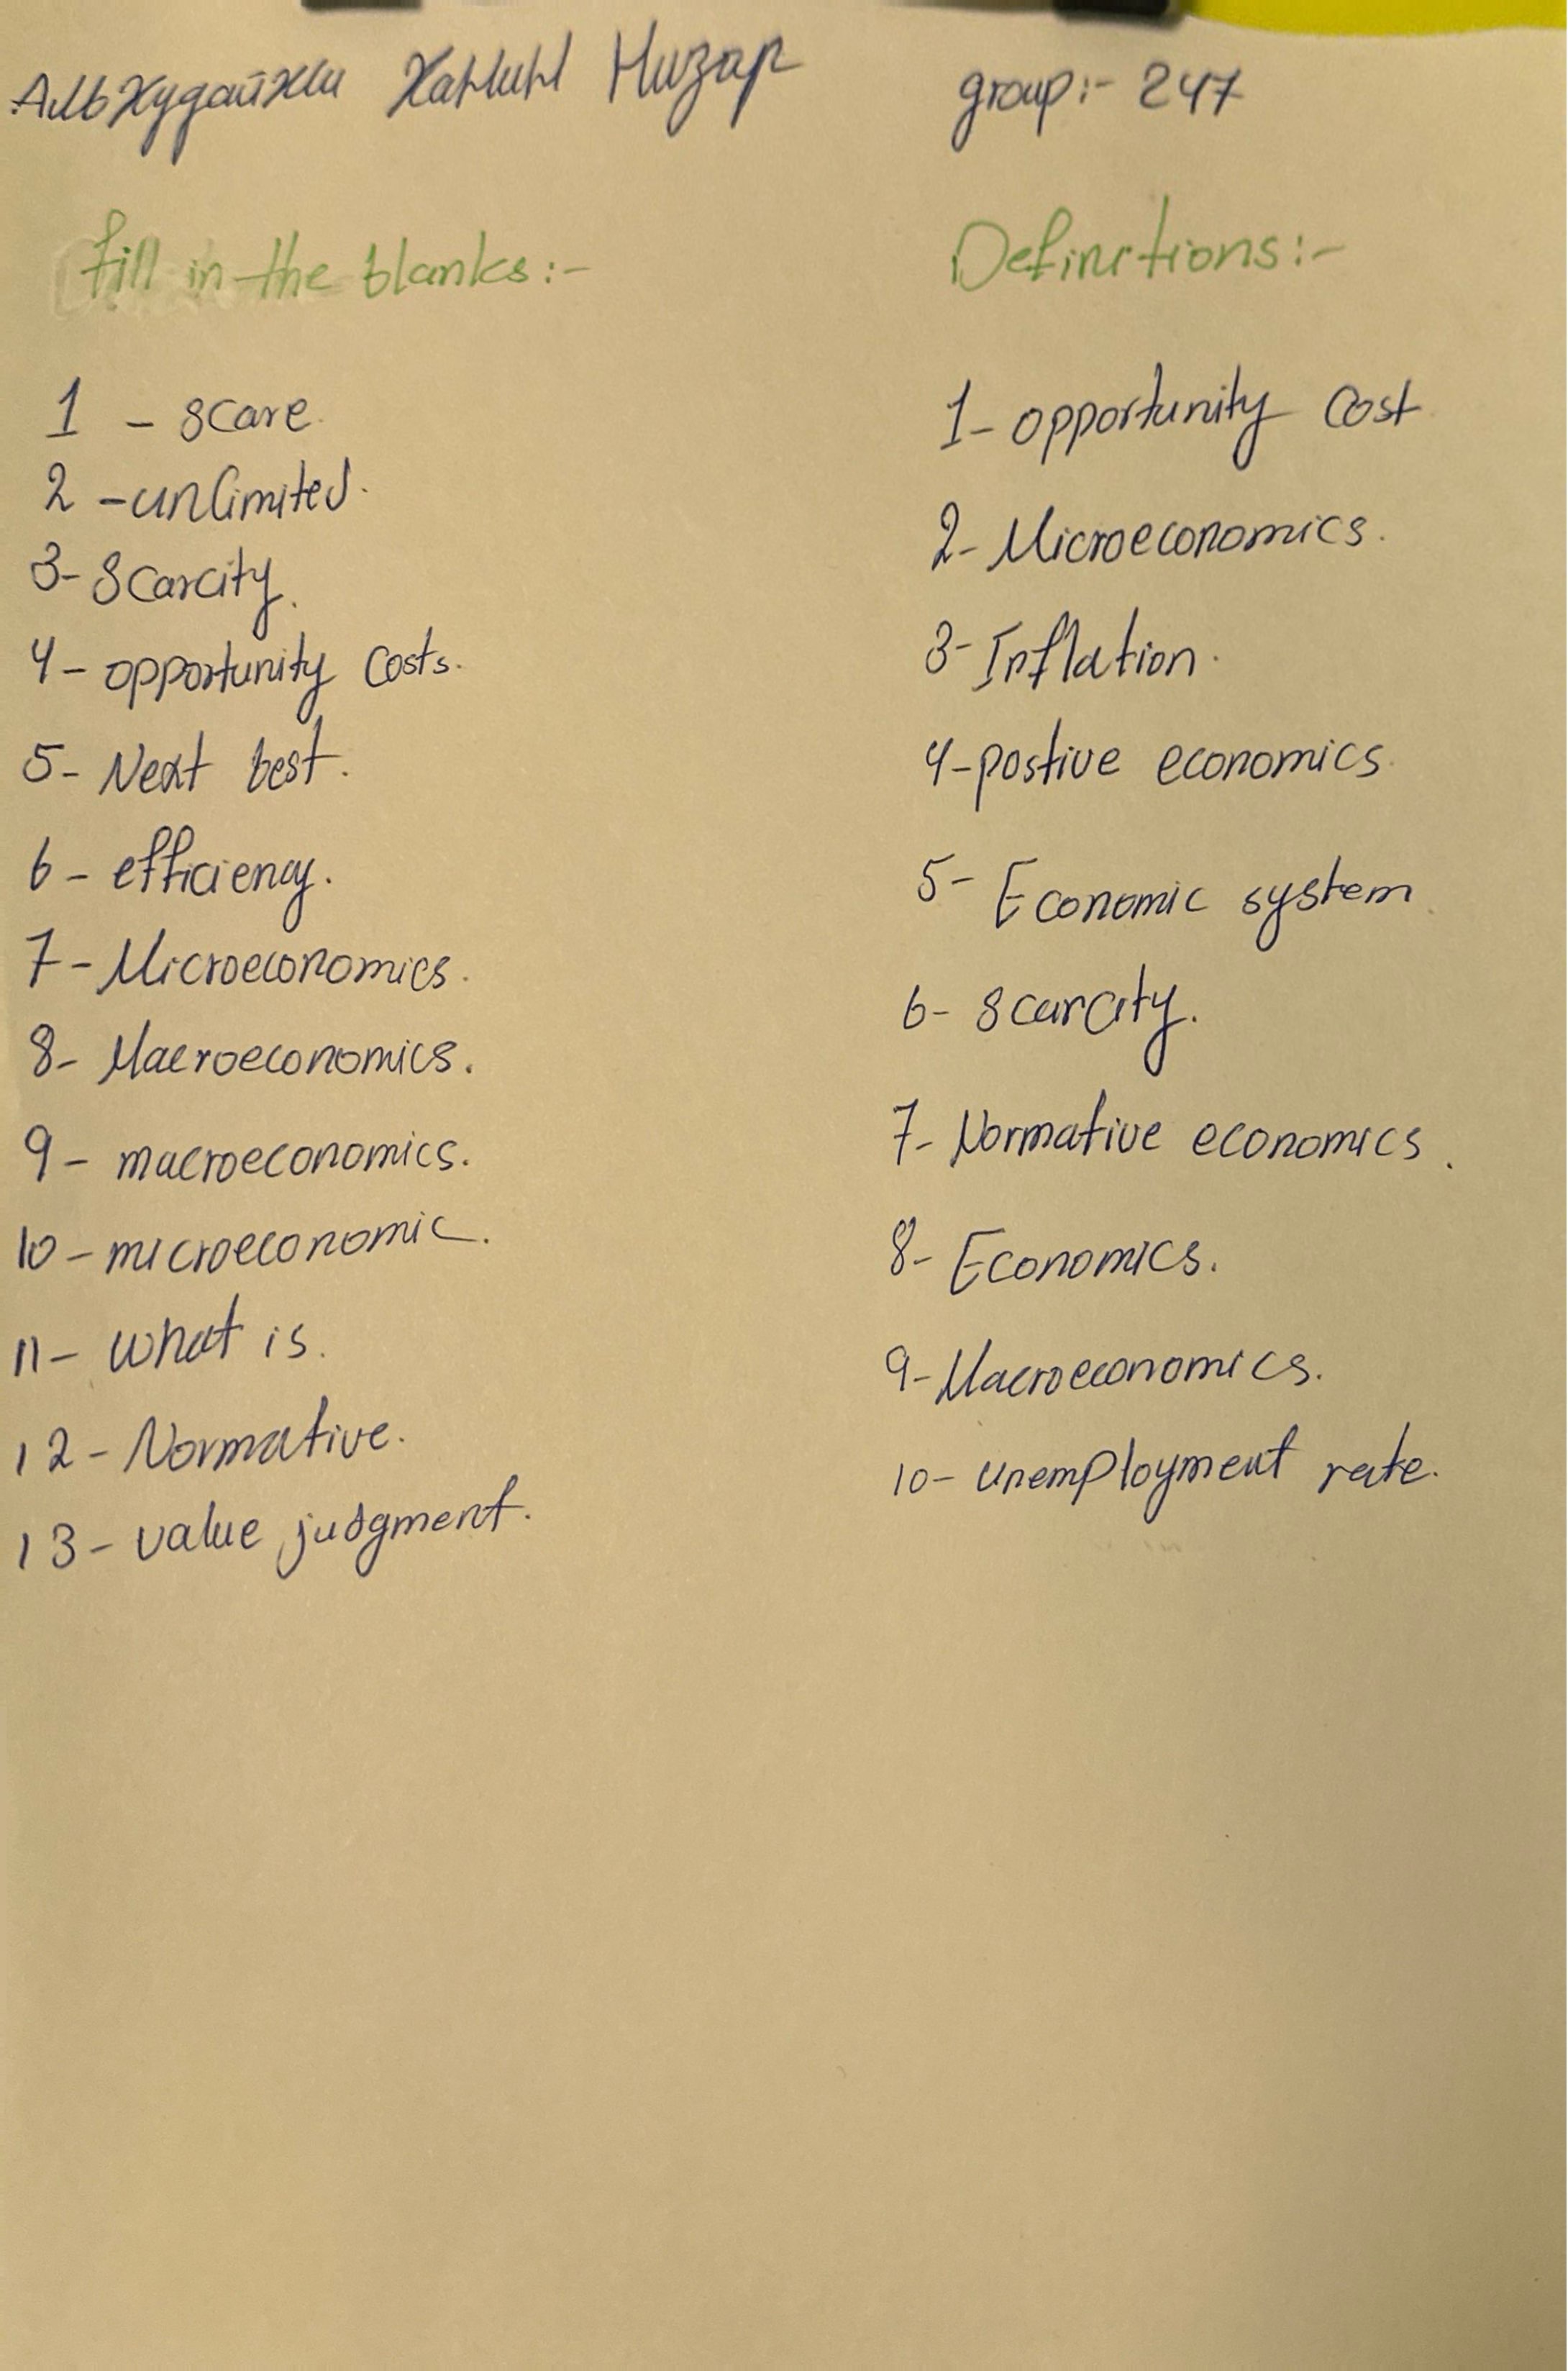 Альхудайхи Ханин Низар
group:- 247
fill in the blanks:-
1 - scare.
2 - unlimited.
3- Scarcity.
4- opportunity costs.
5- Next best.
6- efficiency.
7- Microeconomics.
8- Macroeconomics.
9- macroeconomics.
10- microeconomic.
11- what is.
12- Normative.
13- value judgment.
Definitions:-
1- opportunity cost
2- Microeconomics.
3- Inflation.
4- postive economics.
5- Economic system.
6- scarcity.
7- Normative economics.
8- Economics.
9- Macroeconomics.
10- unemployment rate.